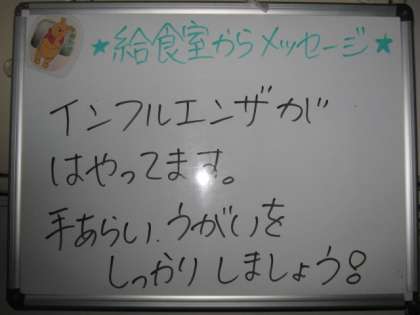 ★給食室からメッセージ★
インフルエンザが
はやってます。
手あらい、うがいを
しっかりしましょう!